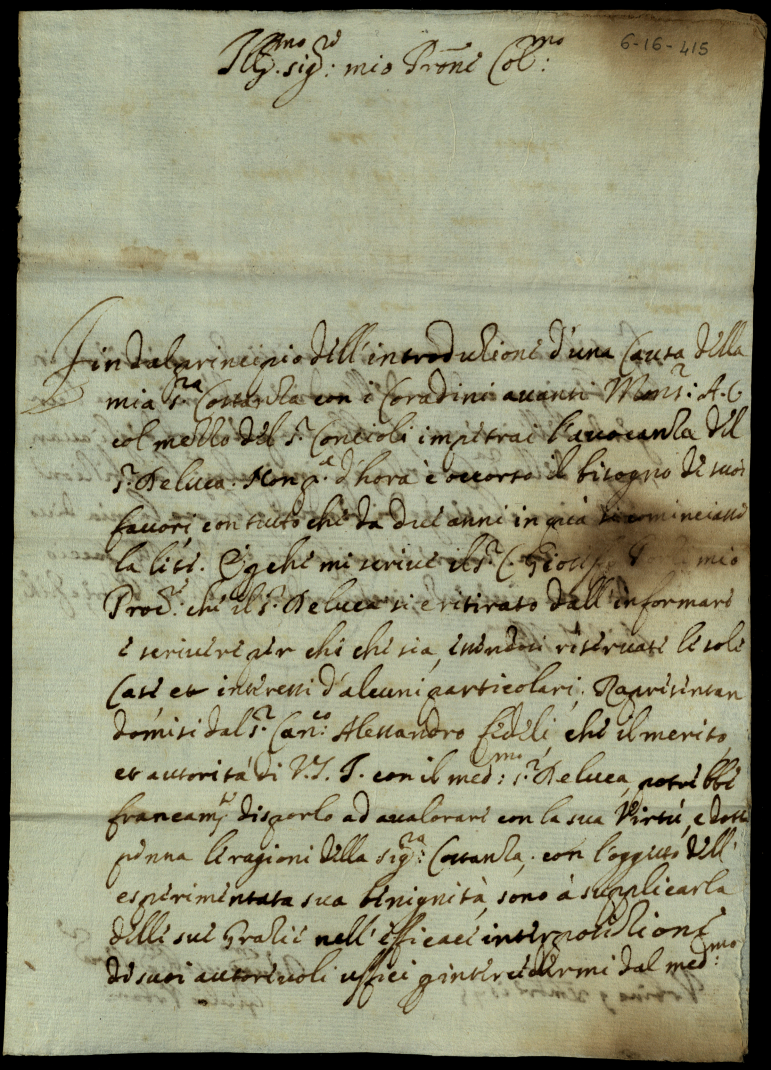 6-16-415
Ill.mo sig.re mio Prone Col.mo
Fin dal principio dell'introdutione d'una Causa della
mia s.ra Costanza con i Coradini avanti Mons.r A. C.
col mezzo del s.r Concioli impetrai l'avvocanza del
s.r Deluca. Non p.a d'hora è occorso il bisogno de suoi
favori, con tutto che da due anni in quà si cominciasse
la lite. Et che mi scrive il s.r C. Gioseppe mio
Proc.re che il s.r Deluca si è ritirato dall'informare
e scrivere per chi che sia, essendosi riservati le sole
Case et interessi d'alcuni particolari; Rapresentan
domisi dal s.r Can.co Alessandro Fedeli, che il merito,
et autorità di V. S. I. con il med.mo s.r Deluca, potrebbe
francam.te disporlo ad avalorare con la sua Virtù, e dotta
penna le ragioni della sig.ra Costanza, con l'oggetto dell'
esperimentata sua benignità, sono à supplicarla
delle sue Gratie nell'efficace interpositione
de suoi autorevoli uffici p intercedermi dal med.mo